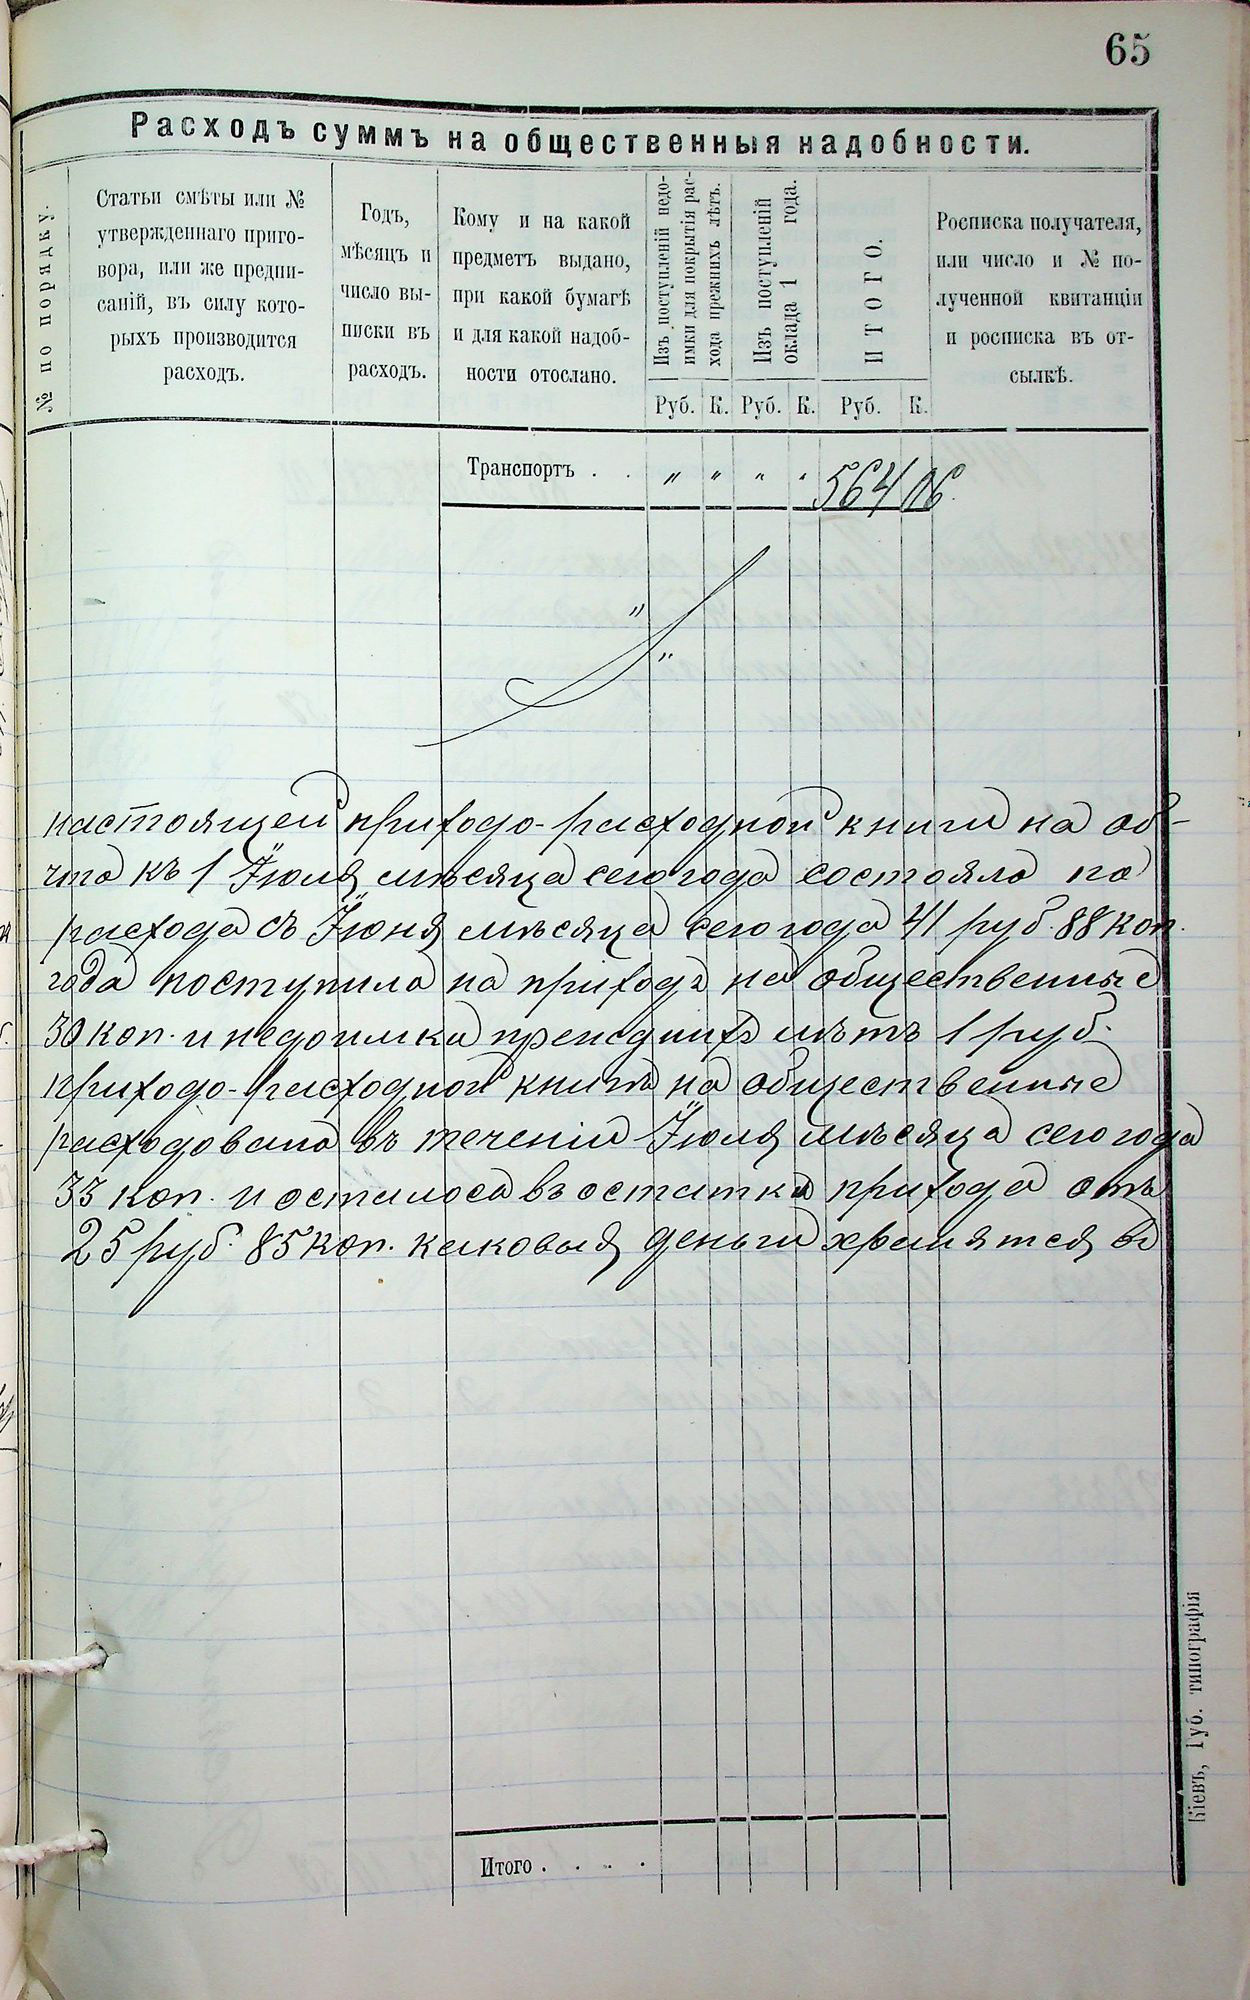 65
Расходъ суммъ на общественныя надобности.
№ по порядку.
Статьи смѣты или №
утвержденнаго приго-
вора, или же предпи-
саній, въ силу кото-
рыхъ производится
расходъ.
Годъ,
мѣсяцъ и
число вы-
писки въ
расходъ.
Кому и на какой
предметъ выдано,
при какой бумагѣ
и для какой надоб-
ности отослано.
Изъ поступленій недо-
имки для покрытія рас-
хода прежнихъ лѣтъ.
Изъ поступленій
оклада 1 года.
ИТОГО.
Росписка получателя,
или число и № по-
лученной квитанціи
и росписка въ от-
сылкѣ.
Руб. К. Руб. К. Руб. К.
Транспортъ . . " " " " 564 06.
настоящей приходо-расходной книги на об-
что къ 1 Іюля мѣсяца сего года состояло по
расхода съ Іюня мѣсяца сего года 41 руб. 88 коп.
года поступило на приходъ на общественные
30 коп. и недоимки прежднихъ лѣтъ 1 руб.
приходо-расходной книгѣ на общественные
расходовано въ теченіи Іюля мѣсяца сего года
33 коп. и осталось въ остатки прихода отъ
25 руб. 85 коп. каковыя деньги хранятся въ
Итого . . . .
Кіевъ, Губ. типографія